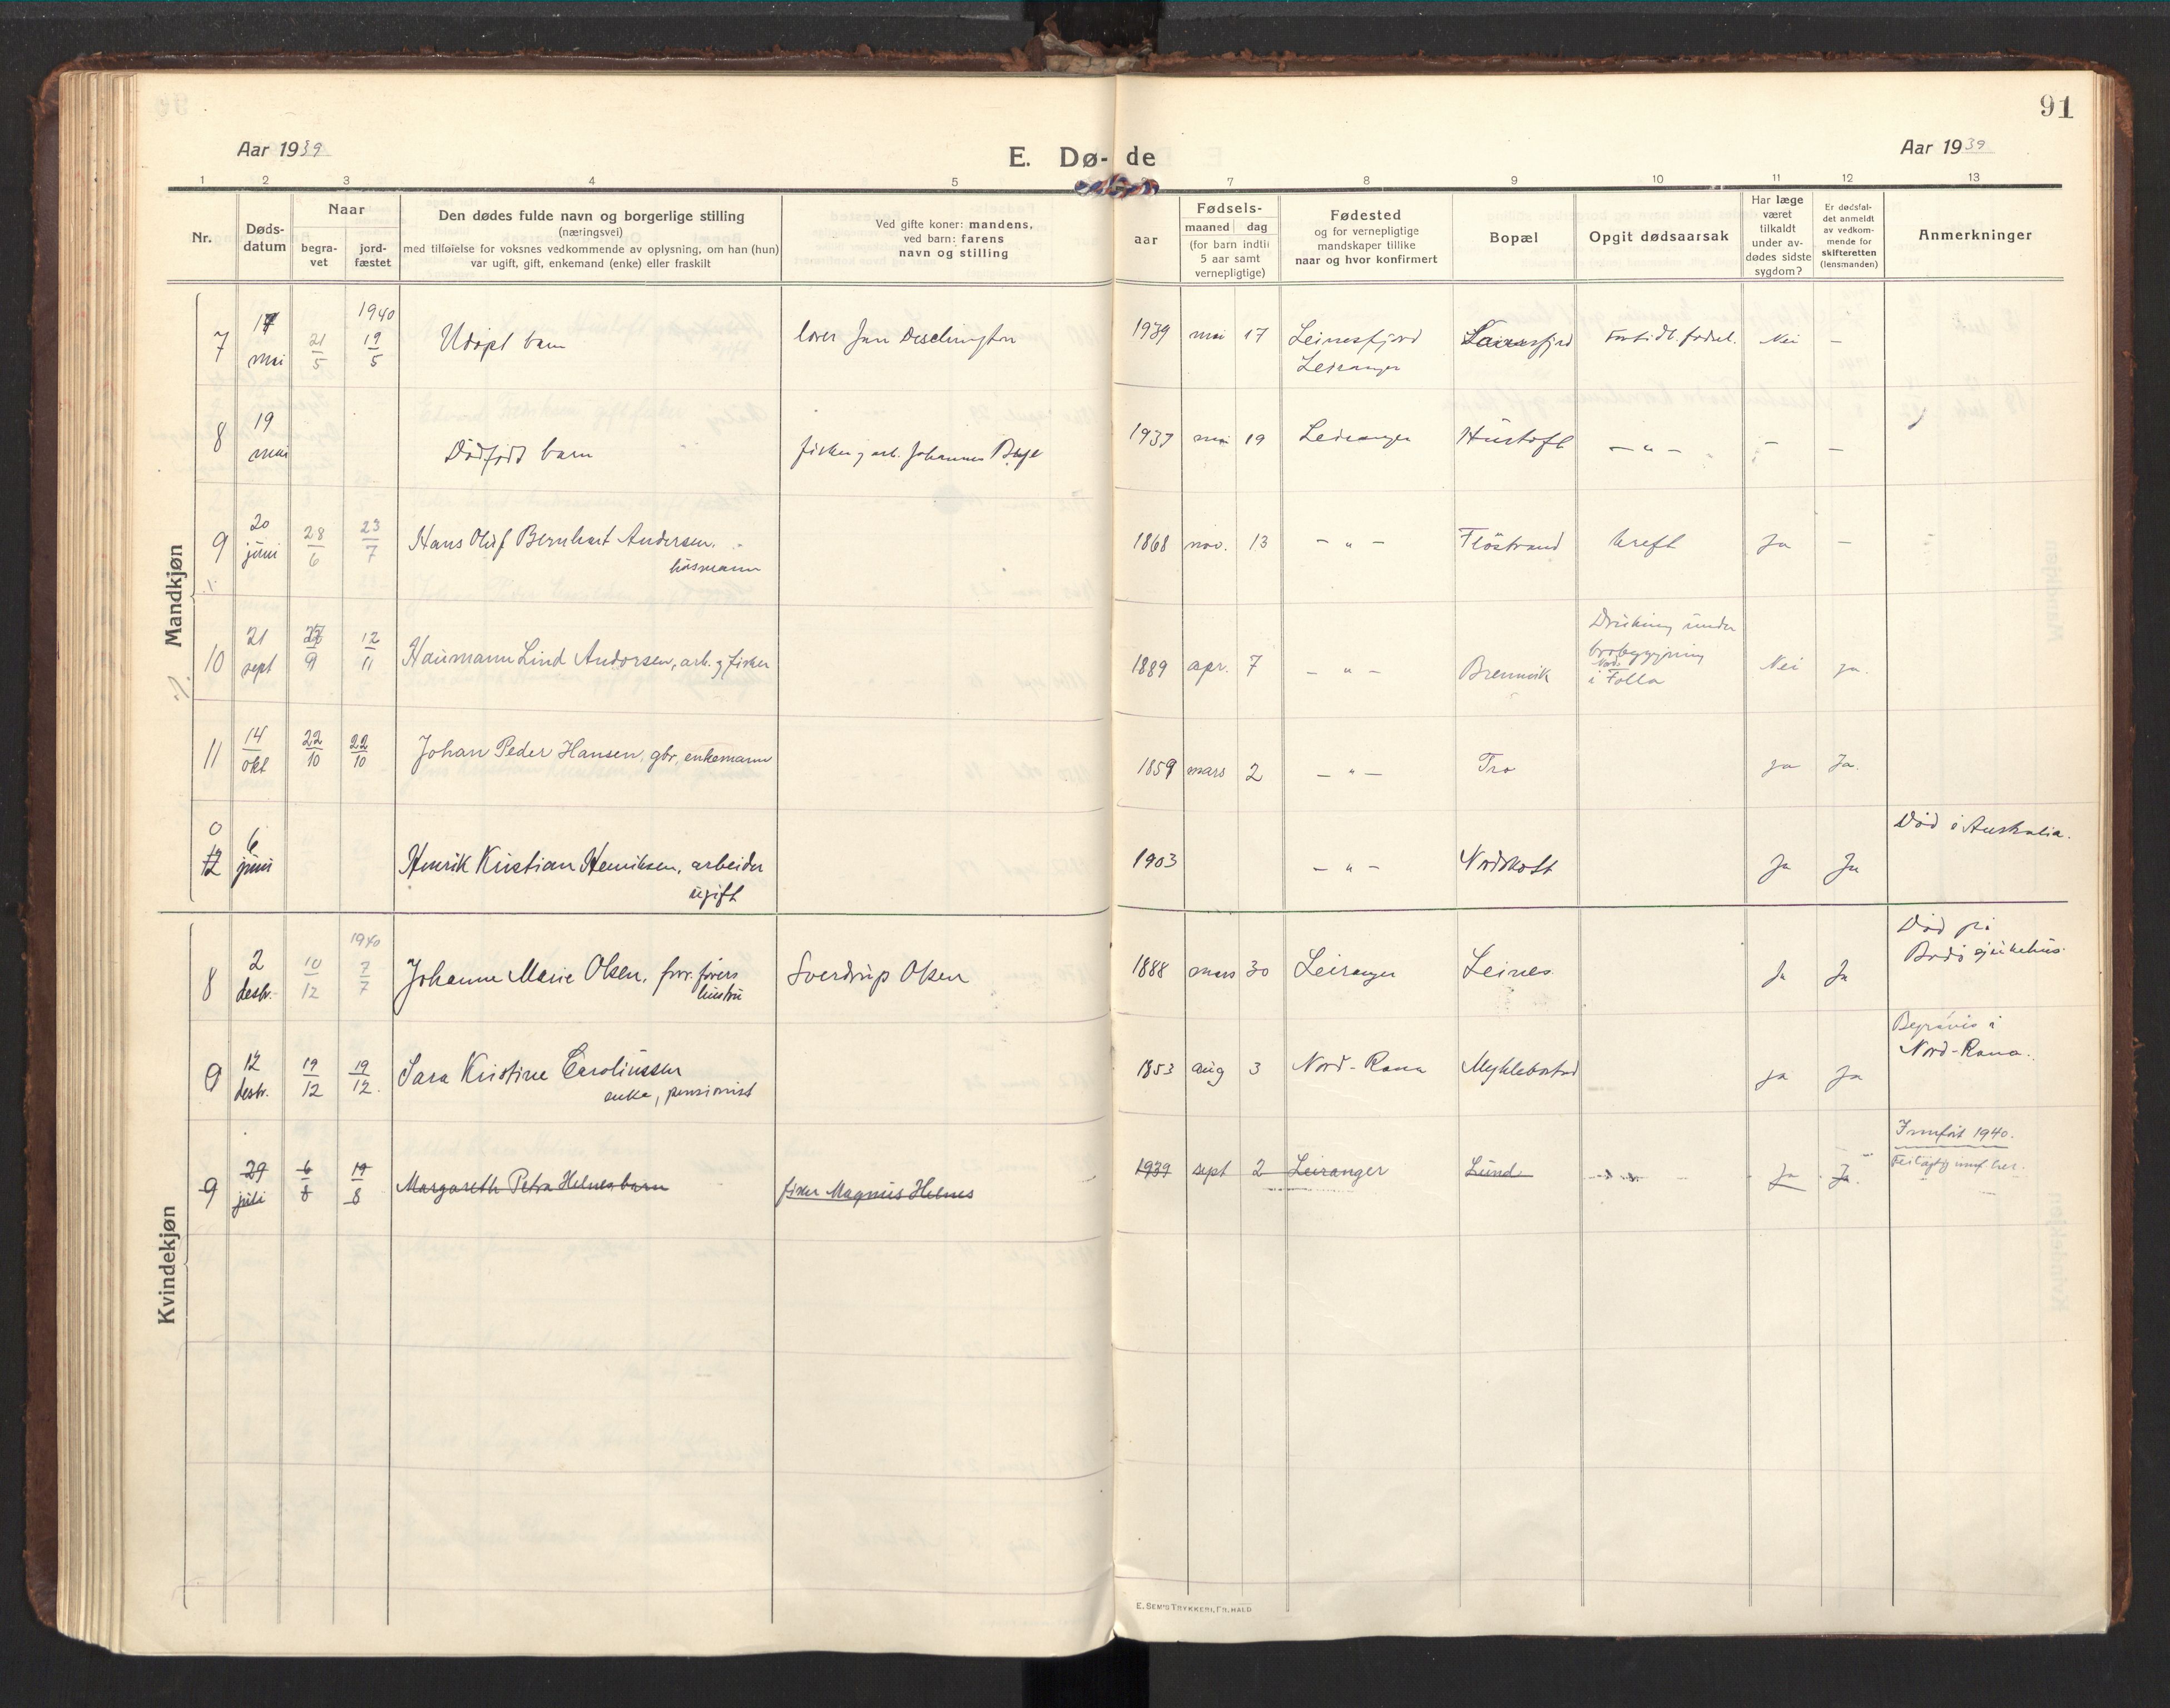 91
Aar 1939
E. Dø-de
Aar 1939
1 2 3 4 5 7 8 9 10 11 12 13
Nr.
Døds-
datum
Naar
begra-
vet
jord-
fæstet
Den dødes fulde navn og borgerlige stilling
(næringsvei)
med tilføielse for voksnes vedkommende av oplysning, om han (hun)
var ugift, gift, enkemand (enke) eller fraskilt
Ved gifte koner: mandens,
ved barn: farens
navn og stilling
Fødsels-
aar
maaned dag
(for barn indtil
5 aar samt
vernepligtige)
Fødested
og for vernepligtige
mandskaper tillike
naar og hvor konfirmert
Bopæl
Opgit dødsaarsak
Har læge
været
tilkaldt
under av-
dødes sidste
sygdom?
Er dødsfal-
det anmeldt
av vedkom-
mende for
skifteretten
(lensmanden)
Anmerkninger
Mandkjøn
7 17 mai 21/5 1940 19/5 Udøpt barn 1939 mai 17 Leinesfjord
Leiranger
Nei –
8 19 mai Dødfødt barn fisker og arb. Johannes 1939 mai 19 Leiranger Hustoft – " – – –
9 20 juni 28/6 23/7 Hans Oluf Bernhart Andersen.
husmann
1868 nov. 13 – " – Flöstrand kreft Ja –
10 21 sept 9 12/11 Haumann Lind Andorsen, arb. og fisker 1889 apr. 7 – " – Brennvik
Drukning under
brobygging
i Nord Folla
Nei ja.
11 14 okt 22/10 22/10 Johan Peder Hansen, gbr, enkemann 1859 mars 2 – " – Tro ja Ja.
0
12 6 juni Henrik Kristian Henriksen, arbeider
ugift
1903 – " – Nordskott Ja Ja Död i Australia.
Kvindekjøn
8 2 desbr. 10/12 1940 7/7 Johanne Marie Olsen, forr. førers
hustru
Sverdrup Olsen 1888 mars 30 Leiranger Leines Ja Ja Död på
Bodö sjukehus.
9 12 desbr. 19/12 19/12. Sara Kristine Caroliussen
enke, pensionist
1853 aug 3 Nord-Rana Myklebostad ja Ja Begravis i
Nord-Rana.
9 29 juli 6/8 19/8 Margareth Petra Helnes barn fisker Magnus Helnes 1939 sept 2 Leiranger Lund Ja Ja.
Innfört 1940.
Feilagtig innf. her.
E. SEM'S TRYKKERI, FR. HALD